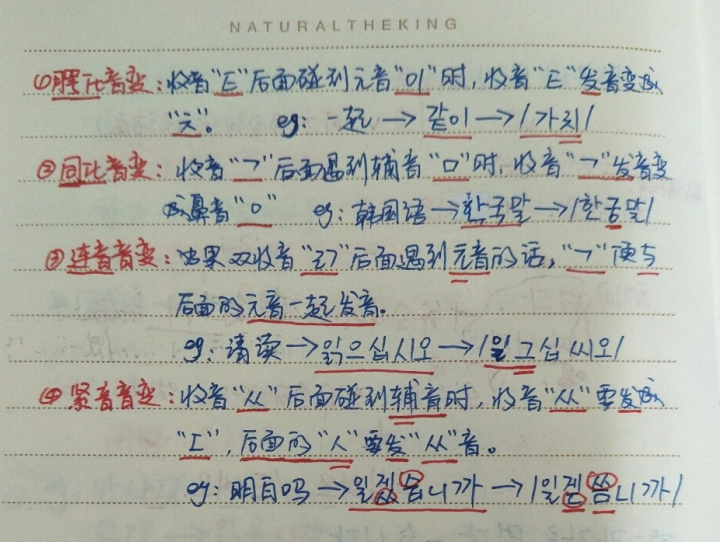 NATURALTHEKING
(1)腭化音变：收音"ㅌ"后面碰到元音"이"时，收音"ㅌ"发音变成
"ㅊ"。 eg：一起→같이→/가치/
②同化音变：收音"ㄱ"后面遇到辅音"ㅁ"时，收音"ㄱ"发音变
成鼻音"ㅇ" eg：韩国语→한국말→/한궁말/
③连音音变：如果双收音"ㄺ"后面遇到元音的话，"ㄱ"便与
后面的元音一起发音。
eg：请读→읽으십시오→/일그십씨오/
④紧音音变：收音"ㅆ"后面碰到辅音时，收音"ㅆ"要发成
"ㄷ"，后面的"ㅅ"要发"ㅆ"音。
eg：明白吗→일겠습니까→/일겓씀니까/